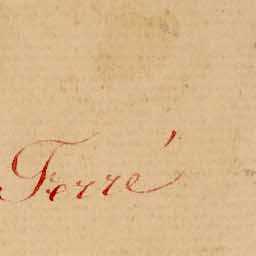 Terré